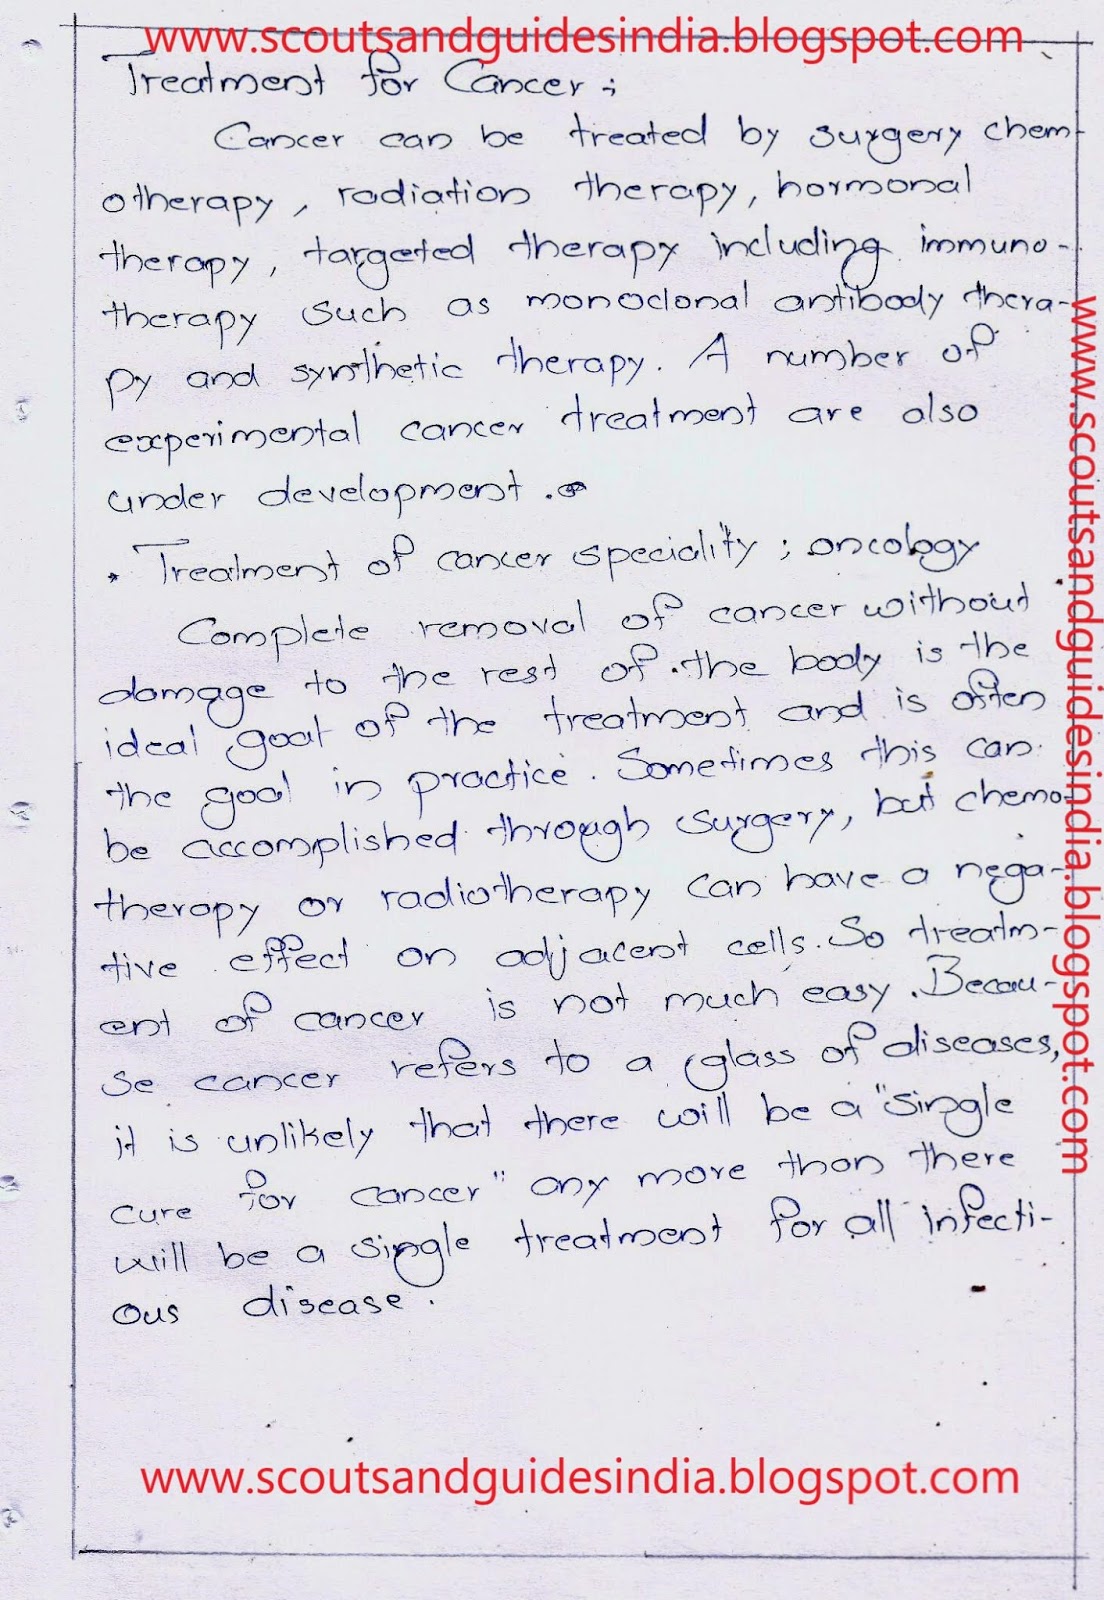 www.scoutsandguidesindia.blogspot.com
Treatment for Cancer ;
Cancer can be treated by surgery chem-
otherapy, radiation therapy, hormonal
therapy, targeted therapy including immuno-
therapy such as monoclonal antibody thera-
py and synthetic therapy. A number of
experimental cancer treatment are also
under development.
• Treatment of cancer speciality ; oncology
Complete removal of cancer without
damage to the rest of the body is the
ideal goal of the treatment and is often
the goal in practice. Sometimes this can
be accomplished through surgery, but chemo-
therapy or radiotherapy can have a nega-
tive effect on adjacent cells. So treatm-
ent of cancer is not much easy. Becau-
se cancer refers to a glass of diseases,
it is unlikely that there will be a "single
cure for cancer" any more than there
will be a single treatment for all infecti-
ous disease.
www.scoutsandguidesindia.blogspot.com
www.scoutsandguidesindia.blogspot.com